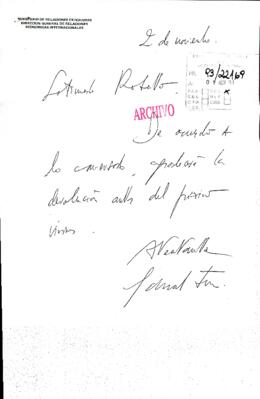 MINISTERIO DE RELACIONES EXTERIORES
DIRECCION GENERAL DE RELACIONES
ECONOMICAS INTERNACIONALES
2 de noviembre.
93/22169
ARCHIVO
Estimado
De acuerdo a
lo conversado, agradeceré la
devolución antes del próximo
viernes.